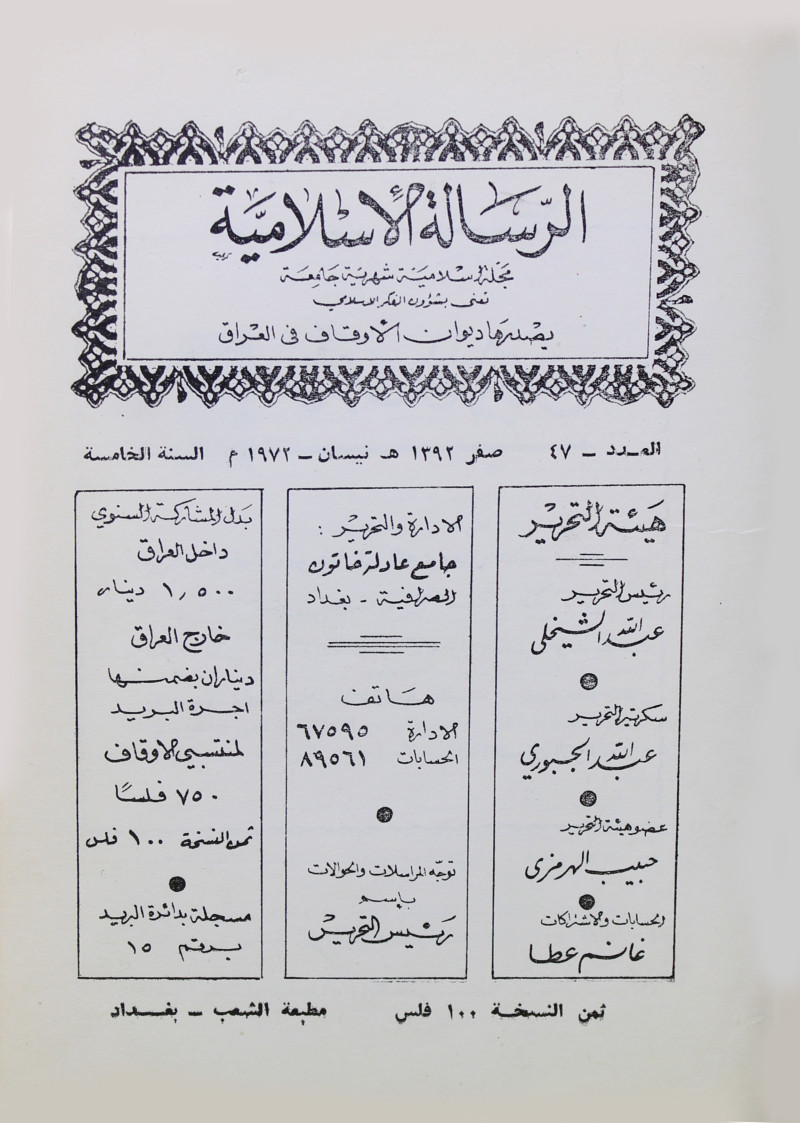 الرسالة الإسلامية
مجلة إسلامية شهرية جامعة
تعنى بشؤون الفكر الاسلامي
يصدرها ديوان الأوقاف في العراق
العـدد ــ ٤٧ صفر ١٣٩٢ هـ نيسان ــ ١٩٧٢ م السنة الخامسة
هيئة التحرير
رئيس التحرير
عبد الله الشيخلي
سكرتير التحرير
عبد الله الجبوري
عضو هيئة التحرير
حبيب الهرمزي
الحسابات والاشتراكات
غانم عطا
الادارة والتحرير :
جامع عادلة خاتون
الصرافية - بغداد
هاتف
الادارة ٦٧٥٩٥
الحسابات ٨٩٥٦١
توجه المراسلات والحوالات
بإسم
رئيس التحرير
بدل المشاركة السنوي
داخل العراق
١,٥٠٠ دينار
خارج العراق
ديناران بضمنها
اجرة البريد
لمنتسبي الاوقاف
٧٥٠ فلسًا
ثمن النسخة ١٠٠ فلس
مسجلة بدائرة البريد
برقم ١٥
ثمن النسخة ١٠٠ فلس مطبعة الشعب ــ بغـداد